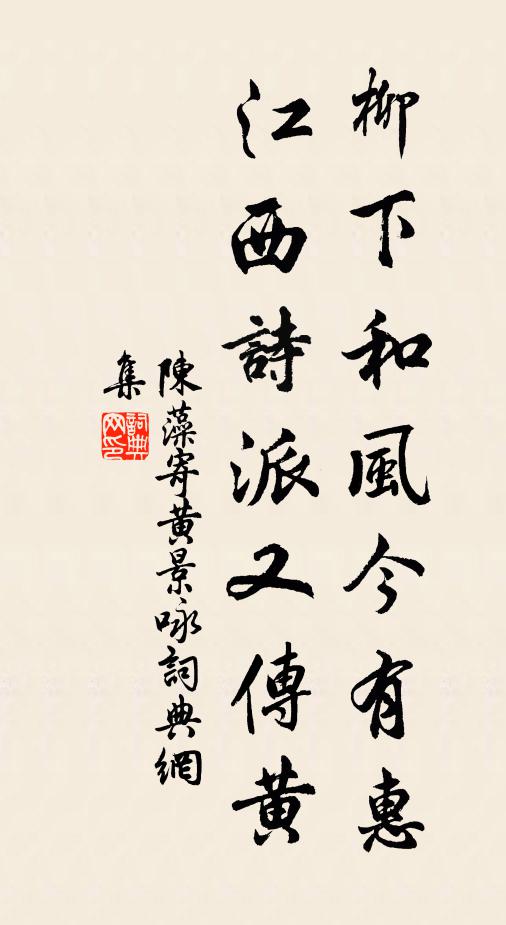 柳下和風今有惠
江西詩派又傳黃
陳藻寄黃景咏詞典網
集
詞典网印